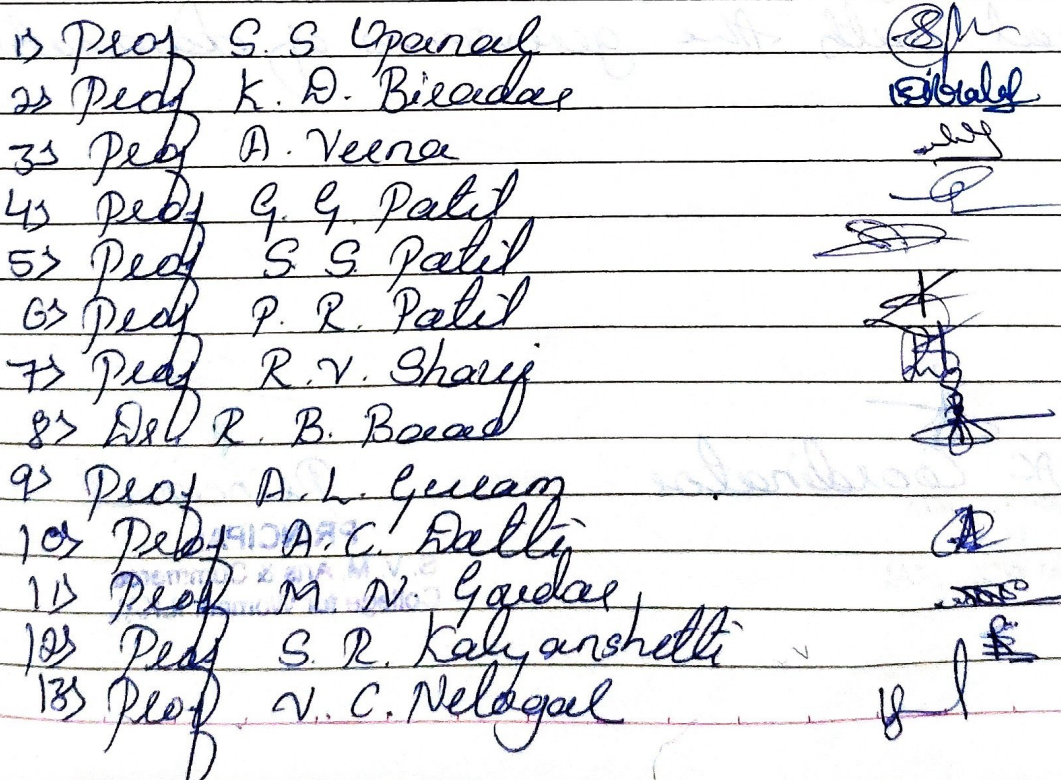 1) Prof S. S Upanal
2) Prof K. D. Biradar
3) Prof A. Veena
4) Prof G. G. Patil
5) Prof S. S. Patil
6) Prof P. R. Patil
7) Prof R. V. Sharif
8) Dr. R. B.
9) Prof A. L. Guram
10) Prof A. C. Datti
11) Prof M. N. Gardar
12) Prof S. R. Kalyanshetti
13) Prof V. C. Nelogal